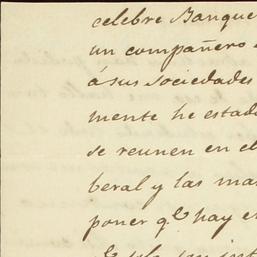 celebre Banque
un compañero
á sus sociedades
mente he estad
se reunen en el
beral y las ma
poner qe hay e